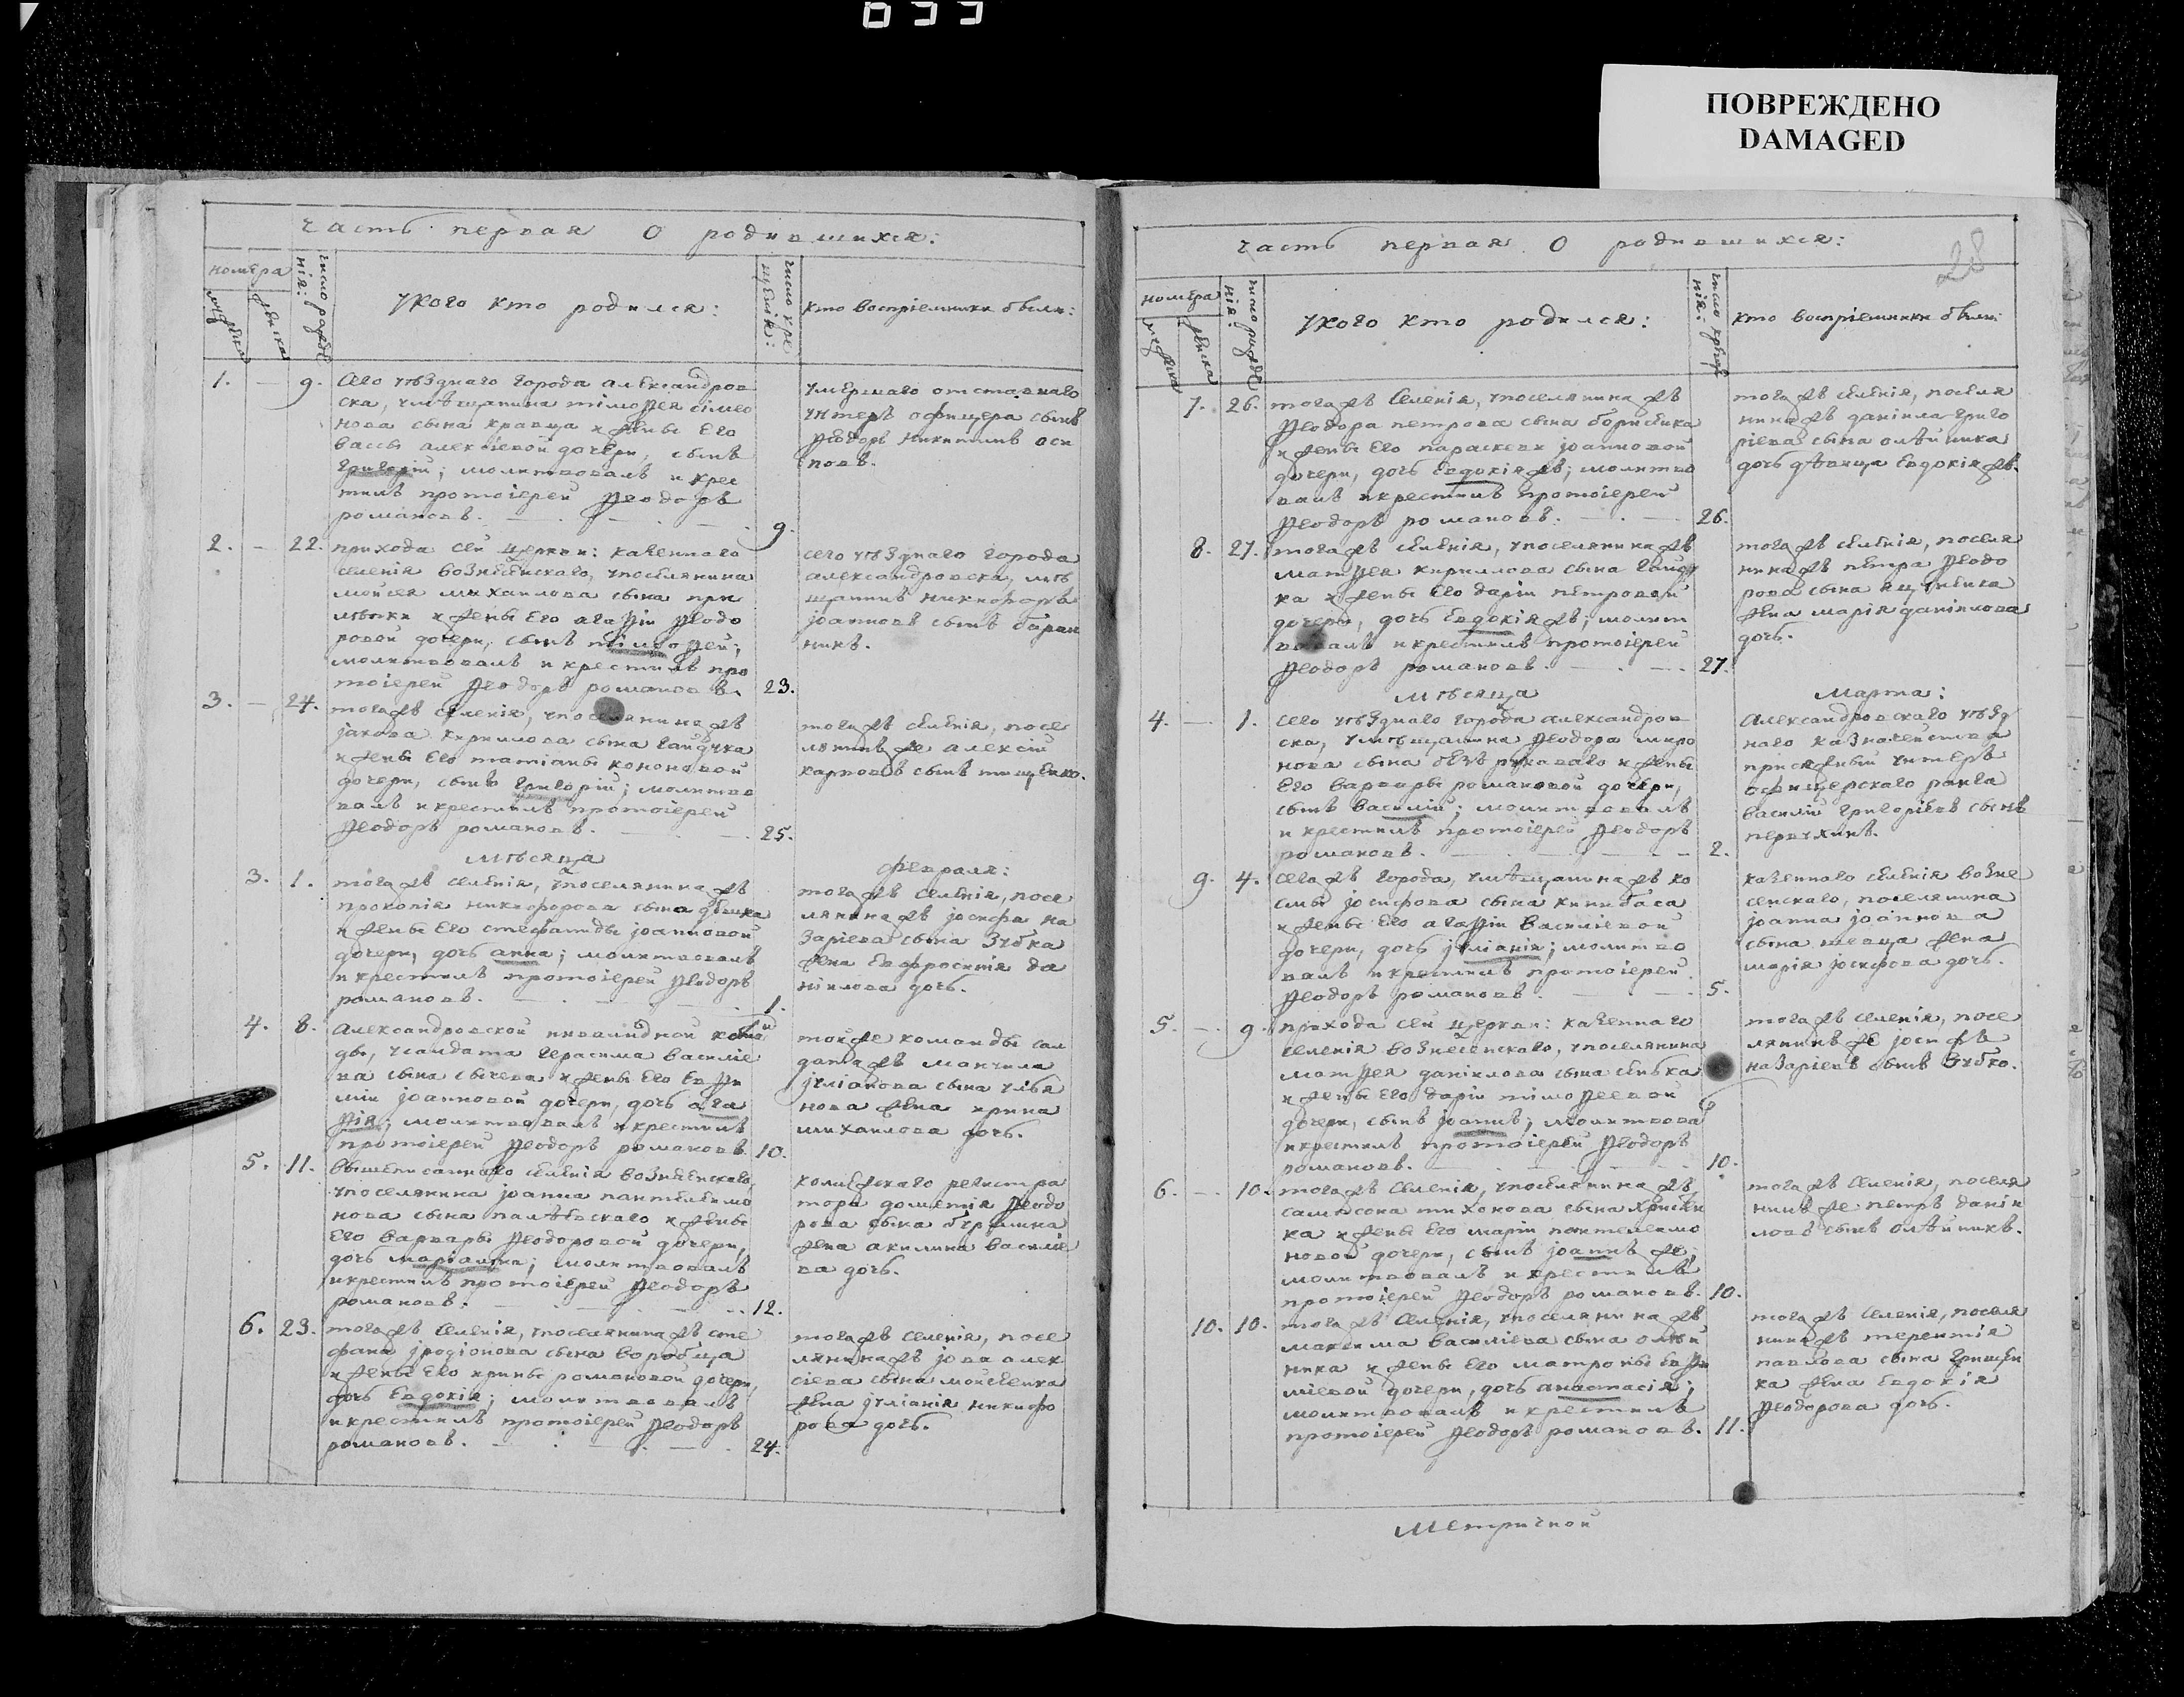 ПОВРЕЖДЕНО
DAMAGED
28
часть первая О родившихся:
номера
мужеска
женска
число рожде
нія:
укого кто родился:
число кре
щенія:
кто воспріемники были:
1. — 9.
Сего уѣзднаго города александров
ска, умѣщанина тімоѳея сімео
нова сына кравца и жены Его
вассы алексіевой дочери, сынъ
григорій; молитвовалъ и крес
тилъ протоіерей Ѳеодоръ
романовъ. 9.
умершаго отставнаго
унтеръ офицера сынъ
Ѳеодоръ никитинъ оси
повъ.
2. — 22.
прихода сей церкви: казеннаго
селенія вознесенскаго, упоселянина
мойсея михаилова сына при
и жены Его агаѳіи Ѳеодо
ровой дочери, сынъ тімоѳей;
молитвовалъ и крестилъ про
тоіерей Ѳеодоръ романовъ. 23.
сего уѣзднаго города
александровска, мѣ
щанинъ никифоръ
іоанновъ сынъ баран
никъ.
3. — 24.
тогажъ селенія, упоселянинажъ
іакова кирилова сына гайдука
и жены Его татіаны кононовой
дочери, сынъ григорій; молитво
валъ и крестилъ протоіерей
Ѳеодоръ романовъ. 25.
тогажъ селенія, посе
лянинъ же алексій
карповъ сынъ тищенко.
мѣсяца февраля:
3. 1.
тогажъ селенія, упоселянинажъ
прокопія никифорова сына
и жены Его стефаниды іоанновой
дочери, дочь анна; молитвовалъ
и крестилъ протоіерей Ѳеодоръ
романовъ. 1.
тогажъ селенія, посе
лянинажъ іосифа на
заріева сына зубка
жена Евфросинія да
ніилова дочь.
4. 8.
Александровской инвалидной коман
ды, усалдата герасима василіе
ва сына сычева и жены Его Евѳи
міи іоанновой дочери, дочь ага
ѳія; молитвовалъ и крестилъ
протоіерей Ѳеодоръ романовъ. 10.
тойже команды сал
датажъ
іуліанова сына улья
нова жена ирина
михаилова дочь.
5. 11.
вышеписаннаго селенія вознесенскаго,
упоселянина іоанна пантелеимо
нова сына и жены
Его варвары Ѳеодоровой дочери,
дочь маріамна; молитвовалъ
и крестилъ протоіерей Ѳеодоръ
романовъ. 12.
колежскаго регистра
тора дометія Ѳеодо
рова сына
жена акилина василіе
ва дочь.
6. 23.
тогажъ селенія, упоселянинажъ сте
фана іродіонова сына воробца
и жены Его ирины романовой дочери,
дочь Евдокія; молитвовалъ
и крестилъ протоіерей Ѳеодоръ
романовъ. 24.
тогажъ селенія, посе
лянинажъ іова алек
сіева сына мойсеенка
жена іуліанія никифо
рова дочь.
часть первая О родившихся:
номера
мужеска
женска
число рожде
нія:
укого кто родился:
число креще
нія:
кто воспріемники были:
7. 26.
тогажъ селенія, упоселянинажъ
Ѳеодора петрова сына борисенка
и жены Его параскеви іоанновой
дочери, дочь Евдокіяжъ; молитво
валъ и крестилъ протоіерей
Ѳеодоръ романовъ. 26.
тогажъ селенія, поселя
нинажъ даніила григо
ріева сына олѣйника
дочь дѣвица Евдокіяжъ.
8. 27.
тогажъ селенія, упоселянинажъ
матѳея кириллова сына гайду
ка и жены Его даріи петровой
дочери, дочь Евдокіяжъ; молит
вовалъ и крестилъ протоіерей
Ѳеодоръ романовъ. 27.
тогажъ селенія, поселя
нинажъ петра Ѳеодо
рова сына яценка
жена марія даніилова
дочь.
мѣсяца марта:
4. — 1.
сего уѣзднаго города александров
ска, умѣщанина Ѳеодора миро
нова сына безъ рукаваго и жены
Его варвары романовой дочери,
сынъ василій; молитвовалъ
и крестилъ протоіерей Ѳеодоръ
романовъ. 2.
Александровскаго уѣзд
наго казначейства
присяжный унтеръ
офицерскаго ранга
василій григоріевъ сынъ
9. 4.
сегажъ города, умѣщанинажъ ко
смы іосифова сына кинибаса
и жены Его агаѳіи василіевой
дочери, дочь іуліанія; молитво
валъ и крестилъ протоіерей
Ѳеодоръ романовъ. 5.
казеннаго селенія возне
сенскаго, поселянина
іоанна іоаннова
сына шевца жена
марія іосифова дочь.
5. — 9.
прихода сей церкви: казеннаго
селенія вознесенскаго, упоселянина
матѳея даніилова сына
и жены Его даріи тімоѳеевой
дочери, сынъ іоаннъ; молитвова
и крестилъ протоіерей Ѳеодоръ
романовъ. 10.
тогажъ селенія, посе
лянинъ же іосифъ
назаріевъ сынъ зубко.
6. — 10.
тогажъ селенія, упоселянинажъ
сампсона тихонова сына
ка и жены Его маріи пантелеимо
новой дочери, сынъ іоаннъ же;
молитвовалъ и крестилъ
протоіерей Ѳеодоръ романовъ. 10.
тогажъ селенія, поселя
нинъ же петръ даніи
ловъ сынъ олѣйникъ.
10. 10.
тогажъ селенія, упоселянинажъ
максима василіева сына олѣй
ника и жены Его матроны Евѳи
міевой дочери, дочь анастасія;
молитвовалъ и крестилъ
протоіерей Ѳеодоръ романовъ. 11.
тогажъ селенія, поселя
нинажъ терентія
павлова сына грищен
ка жена Евдокія
Ѳеодорова дочь.
Метричной